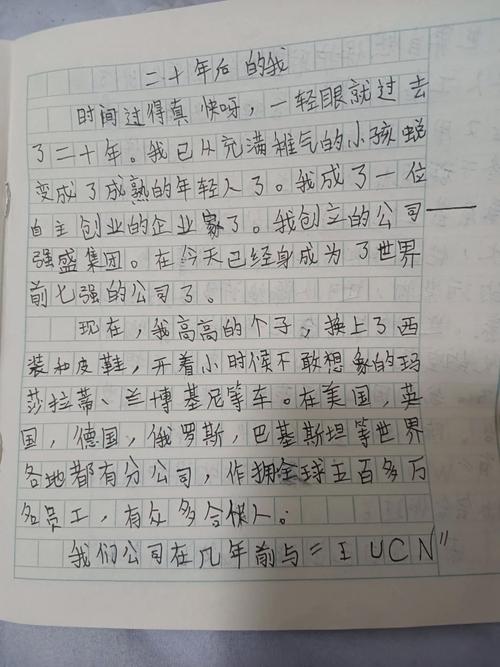 二十年后的我
时间过得真快呀，一轻眼就过去
了二十年。我已从充满稚气的小孩蜕
变成了成熟的年轻人了。我成了一位
自主创业的企业家了。我创立的公司——
强盛集团。在今天已经身成为了世界
前七强的公司了。
现在，我高高的个子，换上了西
装和皮鞋，开着小时候不敢想象的玛
莎拉蒂、兰博基尼等车。在美国，英
国，德国，俄罗斯，巴基斯坦等世界
各地都有分公司，作拥全球五百多万
名员工，有众多合伙人。
我们公司在几年前与 UCN